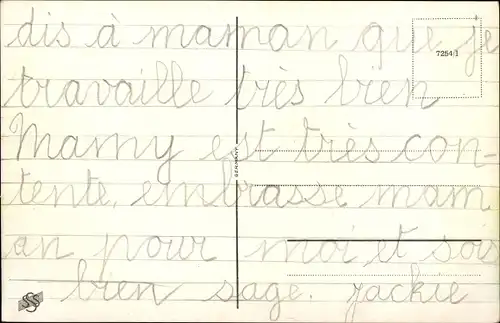 dis à maman que je
7254/1
travaille très bien
Mamy est très con-
GERMANY
tente, embrasse mam
an pour moi et sois
bien sage. Jackie
SSS